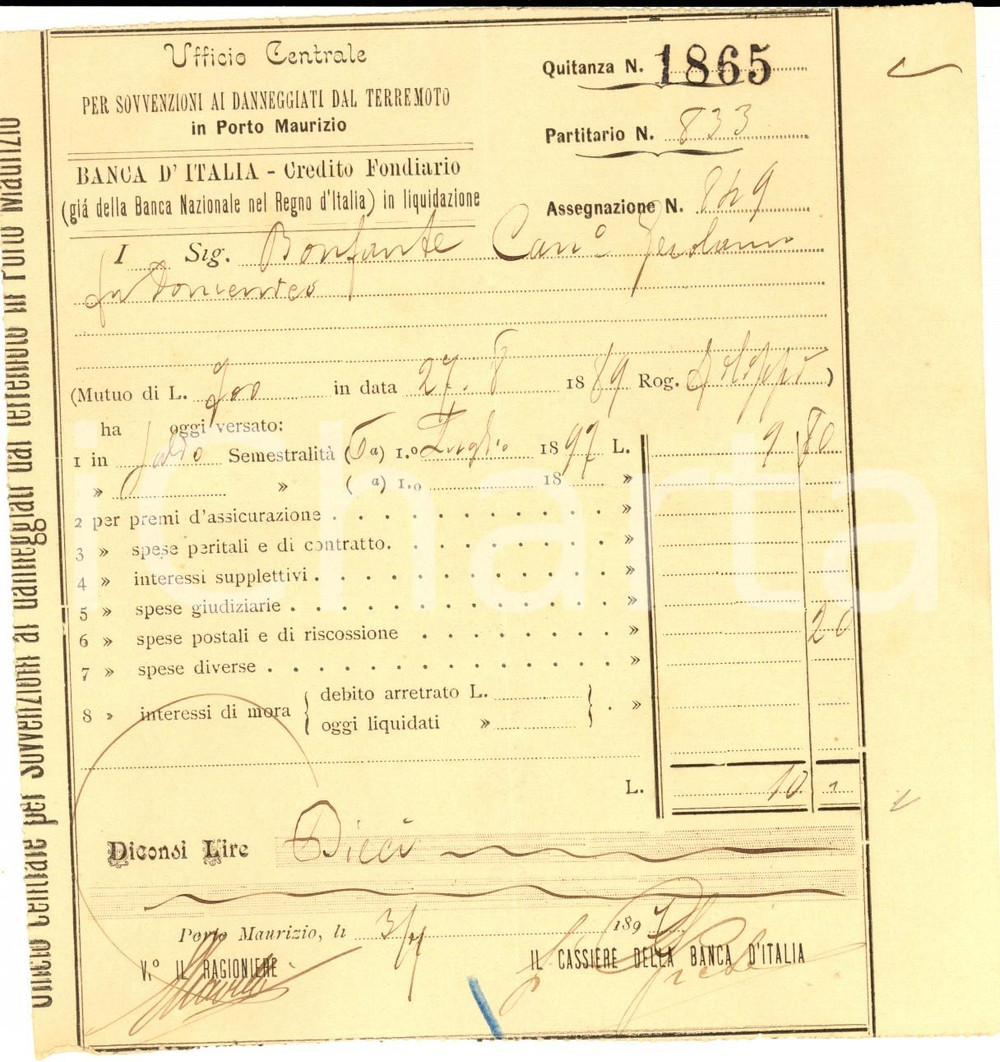 Ufficio Centrale
PER SOVVENZIONI AI DANNEGGIATI DAL TERREMOTO
in Porto Maurizio
BANCA D' ITALIA - Credito Fondiario
(giá della Banca Nazionale nel Regno d'Italia) in liquidazione
Quitanza N. 1865
Partitario N. 833
Assegnazione N. 849
I Sig. Bonfante Can.º Gerolamo
fu Domenico
(Mutuo di L. 300 in data 27. 8 1889 Rog. )
ha oggi versato:
1 in Semestralità (6a) 1.º Luglio 1897 L. 9 80
» » ( a) 1.o 18 »
2 per premi d'assicurazione . . . . . . . . . . »
3 » spese peritali e di contratto. . . . . . . . »
4 » interessi supplettivi . . . . . . . . . . . »
5 » spese giudiziarie . . . . . . . . . . . . »
6 » spese postali e di riscossione . . . . . . . . » 20
7 » spese diverse . . . . . . . . . . . . . »
8 » interessi di mora { debito arretrato L. } . »
oggi liquidati »
L. 10 "
Diconsi Lire Dieci
Porto Maurizio, li 3/7 1897
V.º IL RAGIONIERE
IL CASSIERE DELLA BANCA D'ITALIA
Ufficio Centrale per Sovvenzioni ai danneggiati dal terremoto in Porto Maurizio
iCharta